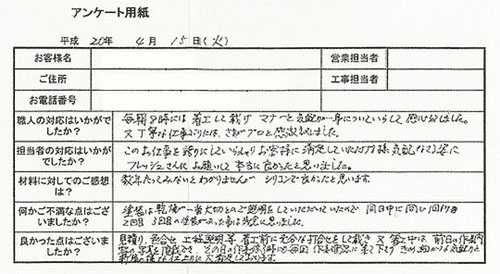 アンケート用紙
平成 20年 4月 15日(火)
お客様名
営業担当者
ご住所
工事担当者
お電話番号
職人の対応はいかがでしたか？
毎朝8時には着工して戴け マナーと気配りが身についていらして感心致しました。
又丁寧な仕事ぶりには、さすがプロと感激致しました。
担当者の対応はいかがでしたか？
このお仕事を誇りにしていらっしゃりお客様に満足していただけ様気配りなさる姿に
フレッシュさんにお願いして本当に良かったと思いました。
材料に対してのご感想は？
数年たってみないとわかりませんが シリコンで良かったと思います。
何かご不満な点はございましたか？
塗装は乾燥が一番大切とのご説明をしていただいていたので 同日中に
2回目 3回目の塗装があった事は
良かった点はございましたか？
見積り、色合せ、工程説明等 着工前に充分な打合せをして戴き 又 着工中は、前日の作業内容